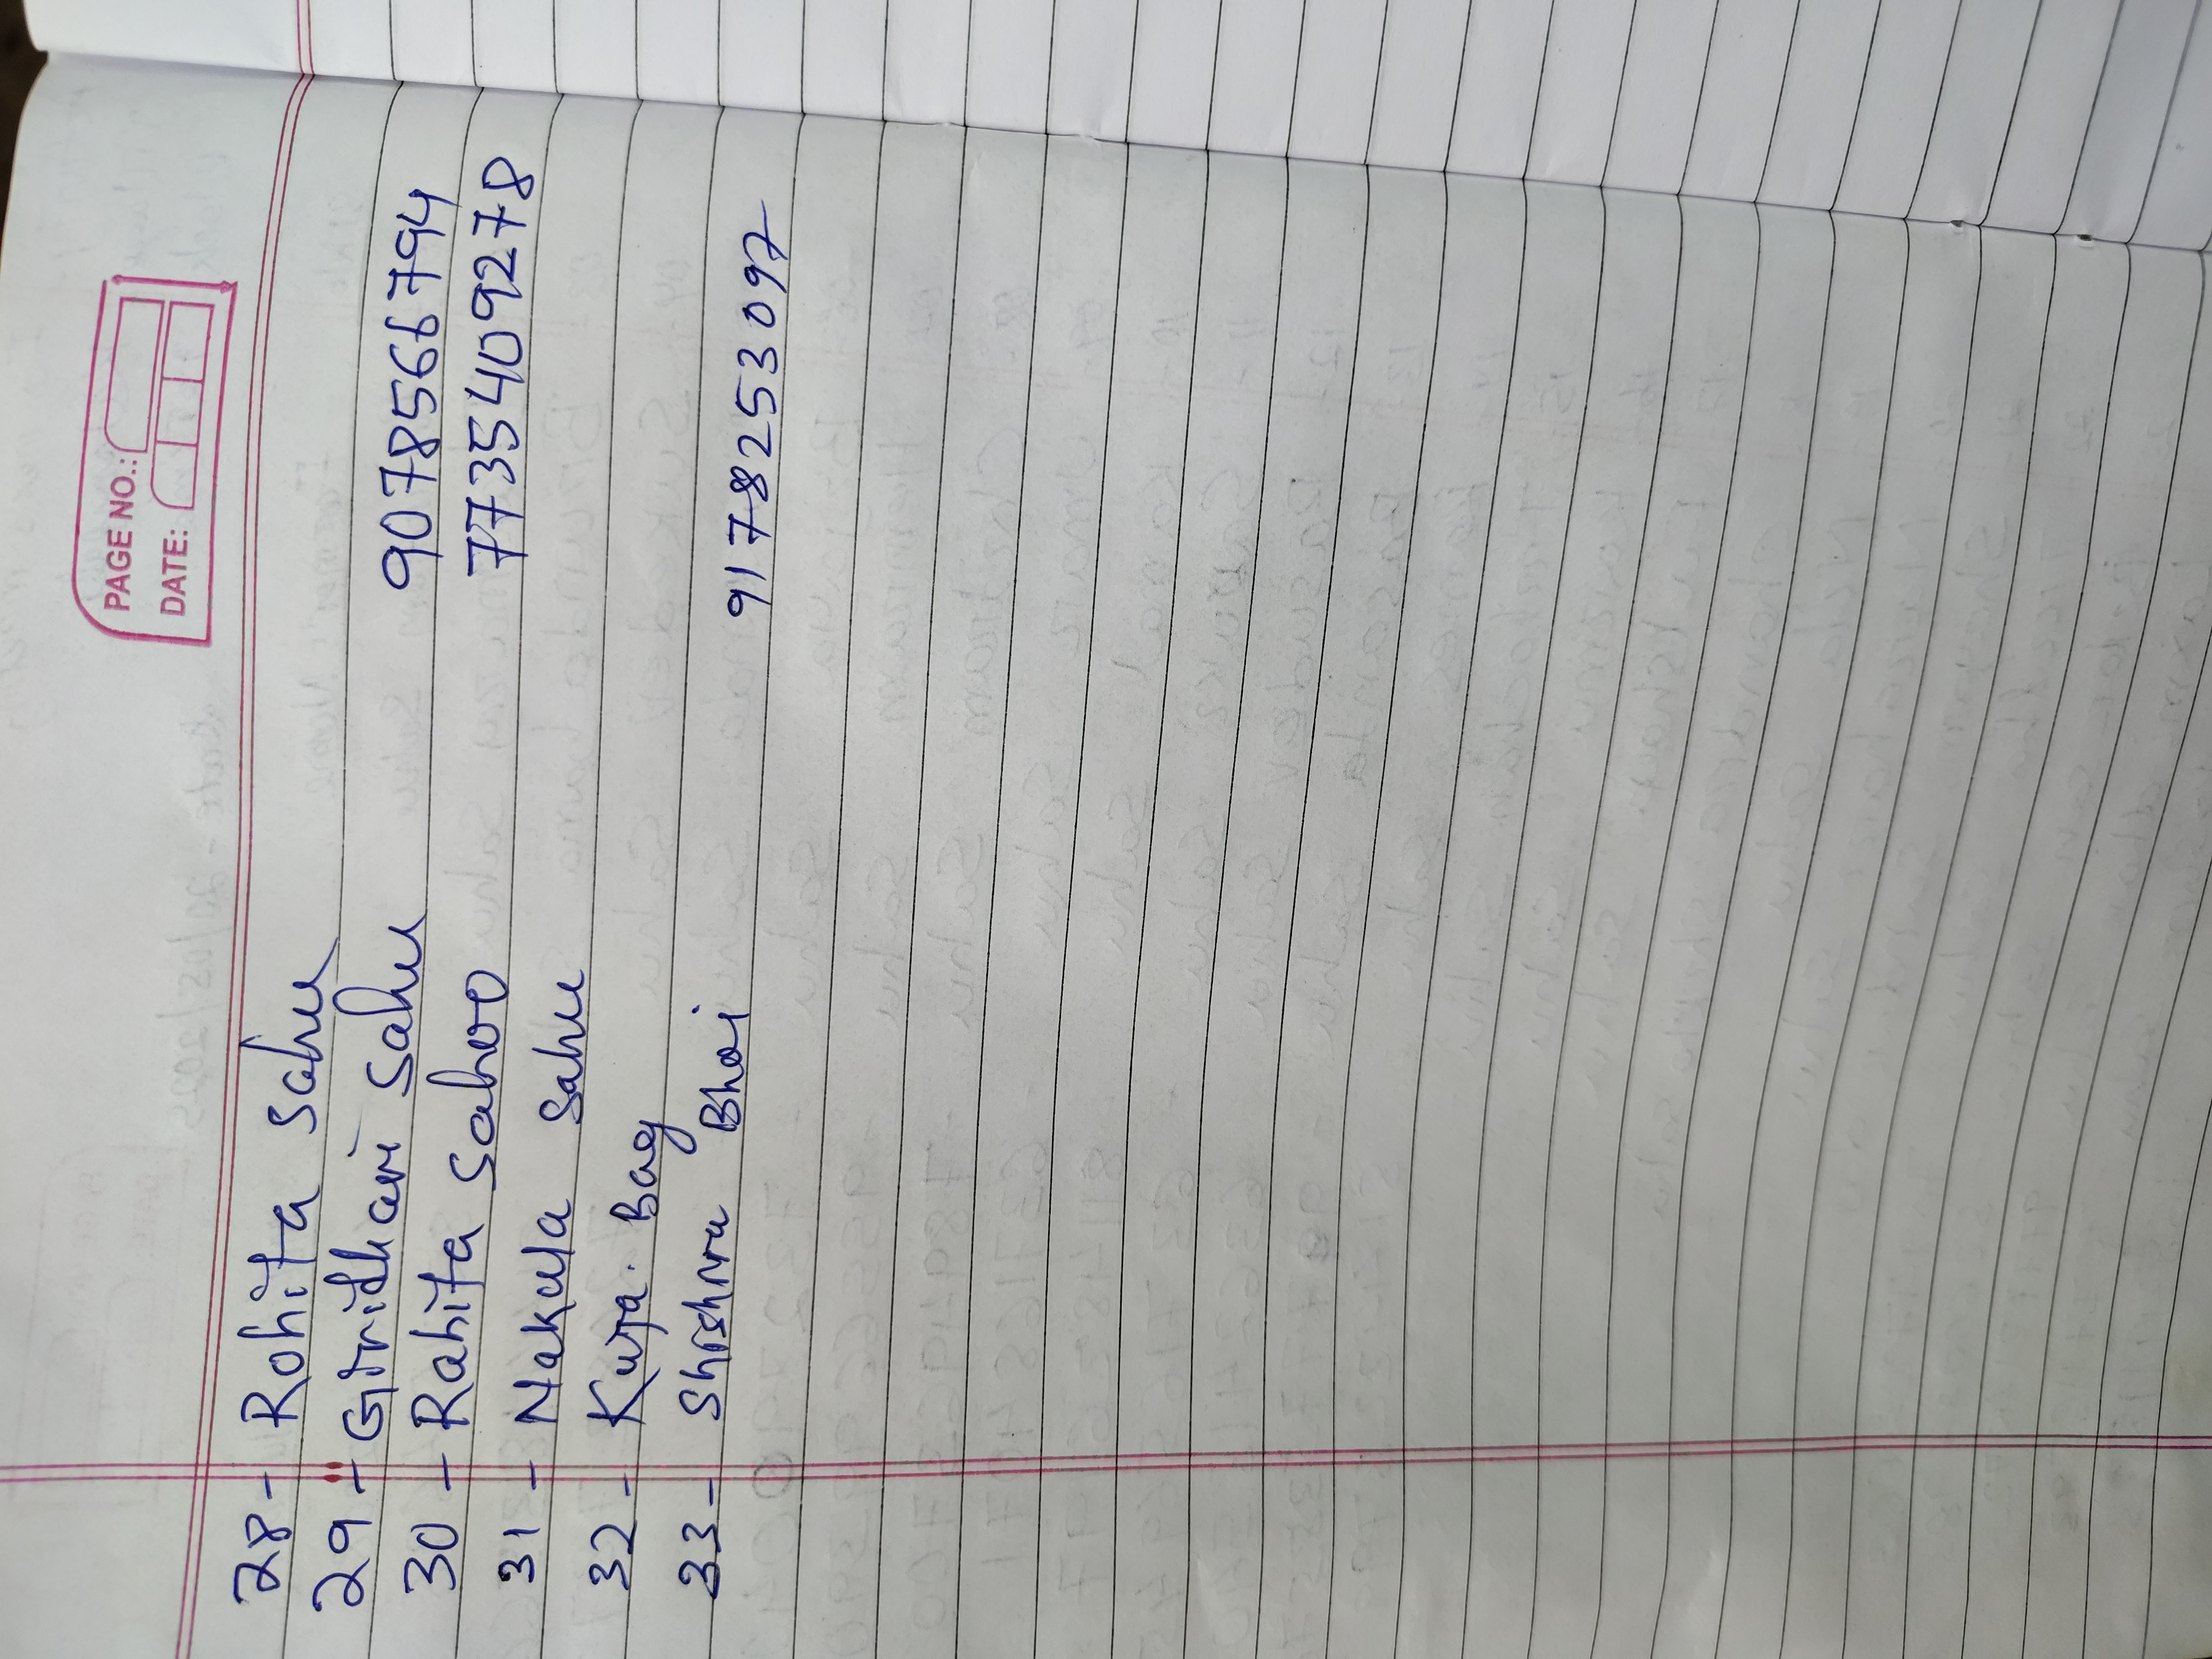 PAGE NO.:
DATE:
28 - Rohita Sahu
29 - Giridhari Sahu 9078566794
30 - Rahita Sahoo 7735409278
31 - Nakula Sahu
32 - Kuja. Bag
33 - Bhoi 9178253097